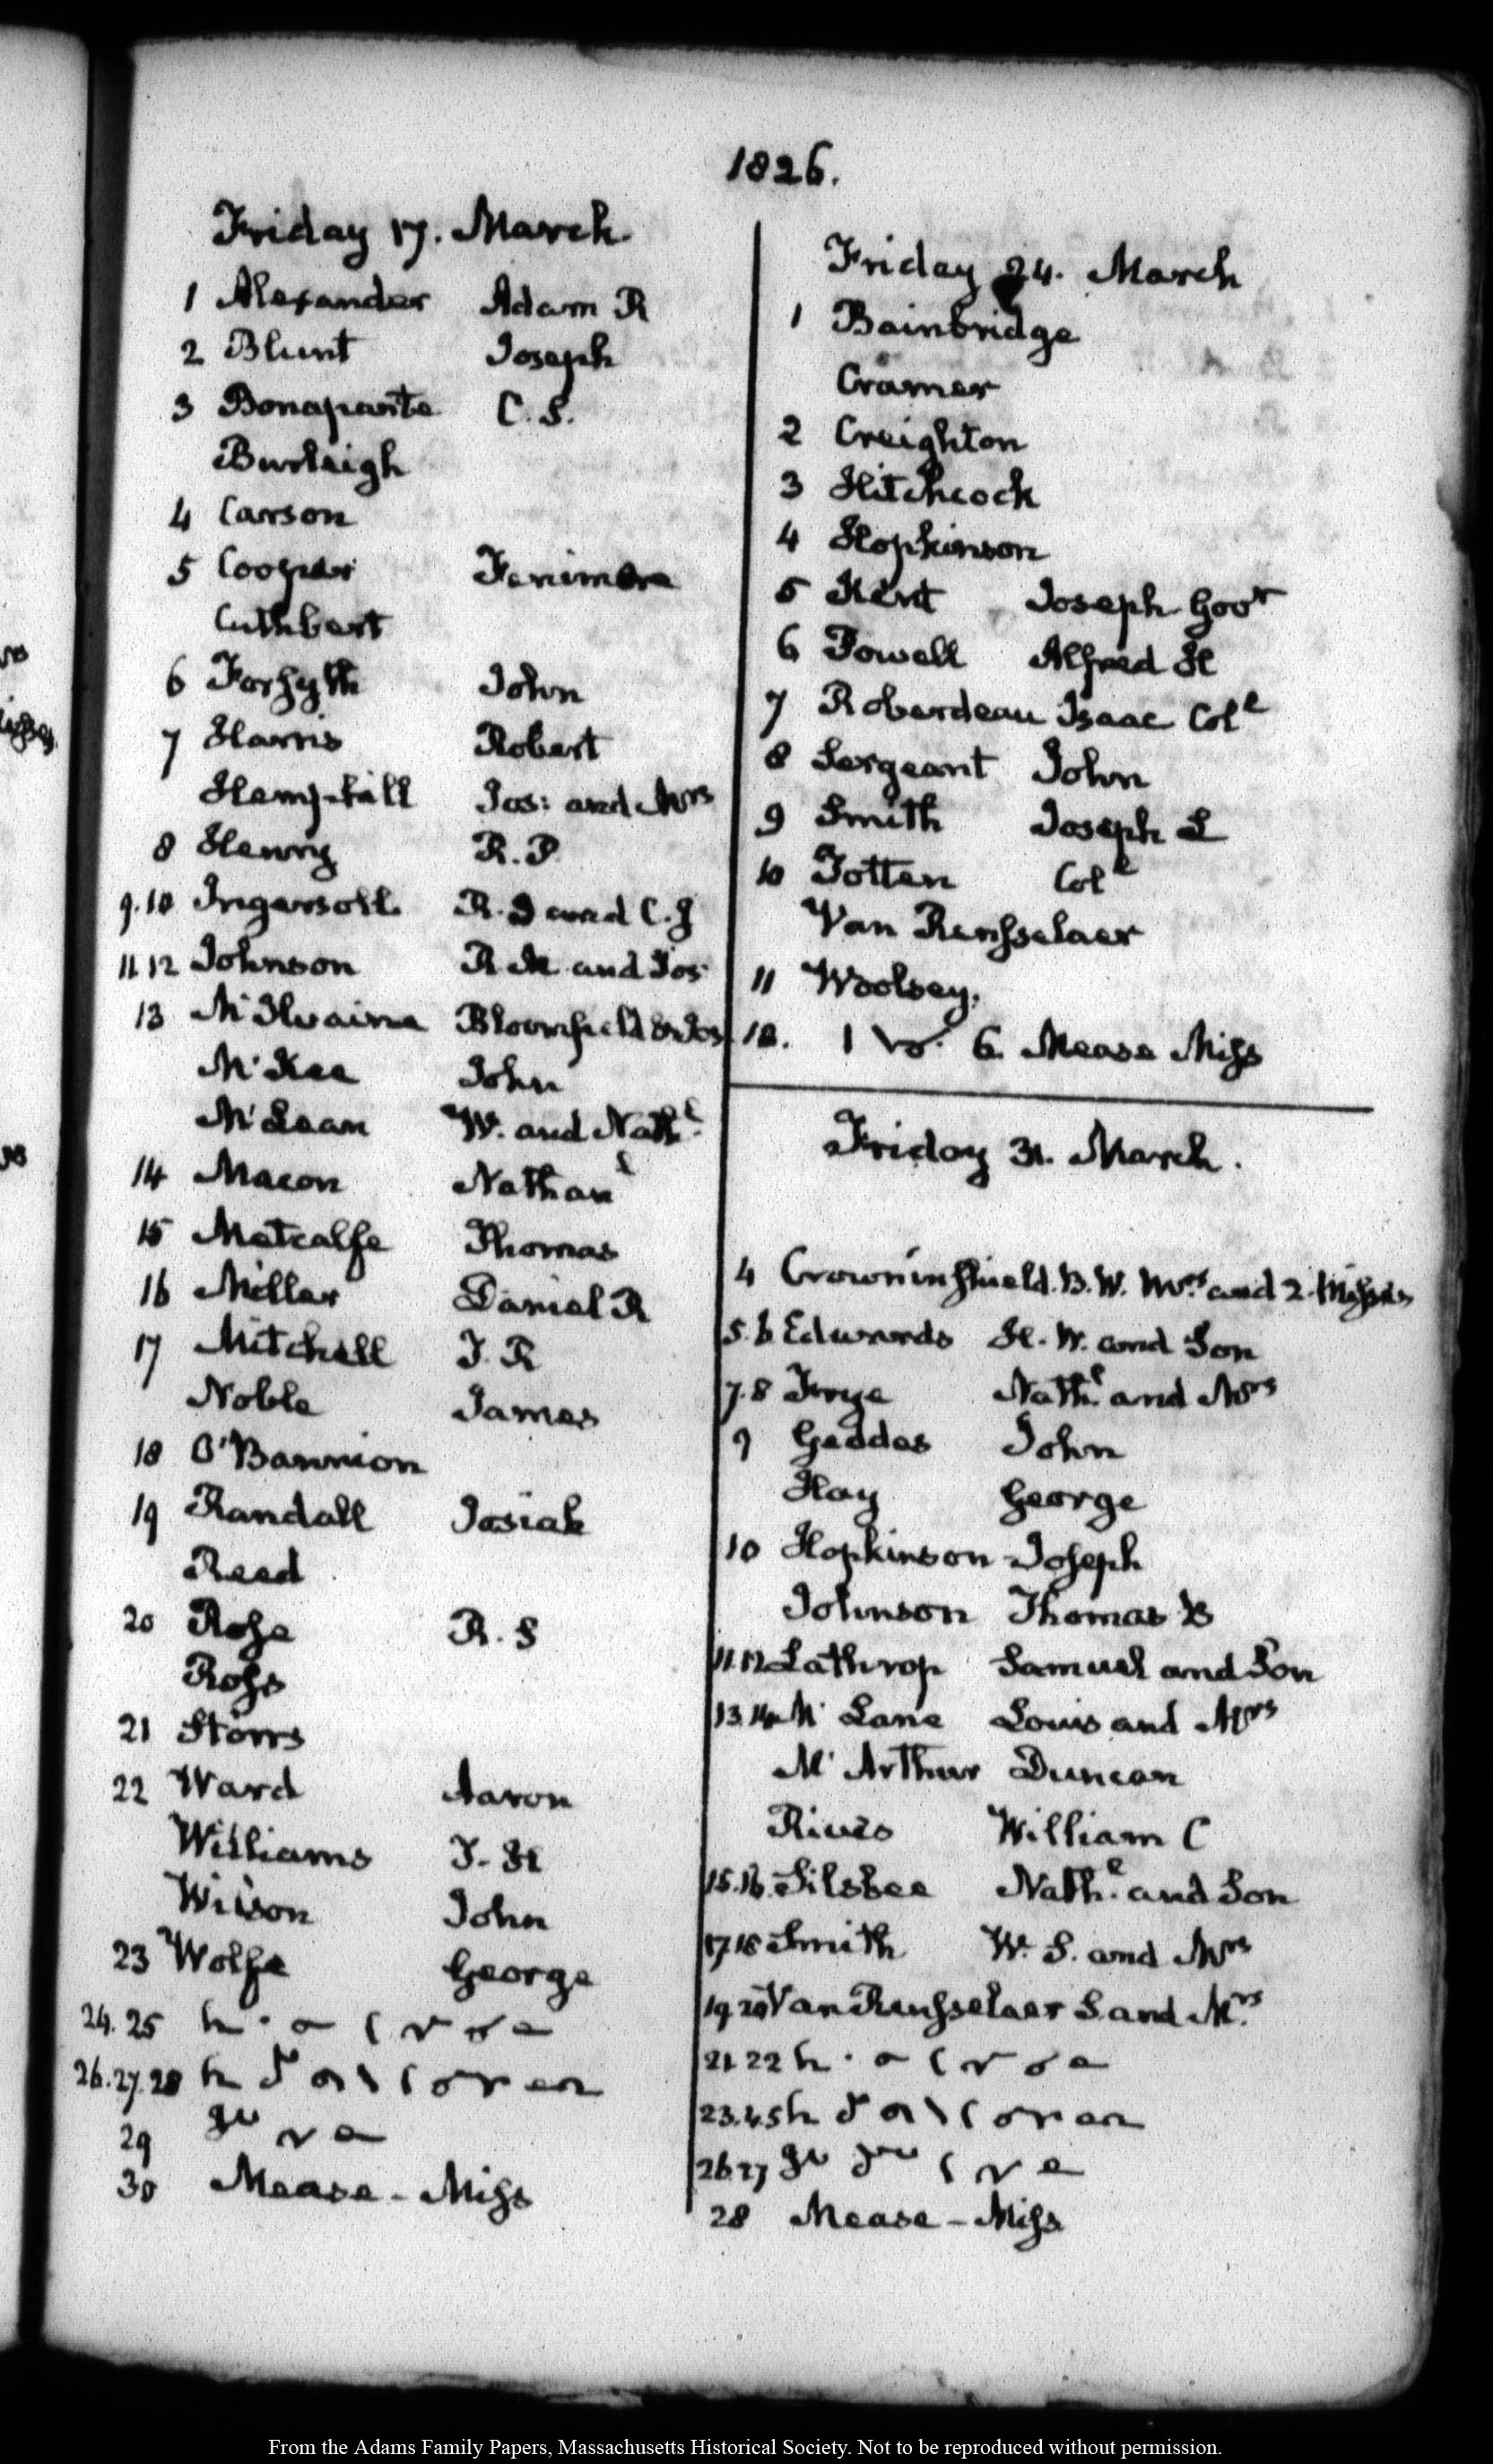 1826.
Friday 17. March.
1 Alexander Adam R
2 Blunt Joseph
3 Bonaparte C. S.
Burleigh
4 Carson
5 Cooper Fenimore
Cuthbert
6 Forsyth John
7 Harris Robert
Hemphill Jos: and Mrs
8 Henry R. P.
9.10 Ingersoll R. J and C. J
11 12 Johnson R M and Jos
13 McIlvaine Bloomfield & Jos
McKee John
McLean W. and Nathl.
14 Macon Nathanl
15 Metcalfe Thomas
16 Miller Daniel R
17 Mitchell J. R
Noble James
18 O'Bannion
19 Randall Josiah
Reed
20 Rose R. S
Ross
21 Storrs
22 Ward Aaron
Williams T. H
Wilson John
23 Wolfe George
24. 25
26. 27. 28
29
30 Mease - Miss
Friday 24. March
1 Bainbridge
Cramer
2 Creighton
3 Hitchcock
4 Hopkinson
5 Kent Joseph Govr
6 Powell Alfred H
7 Roberdeau Isaac Coll
8 Sergeant John
9 Smith Joseph L
10 Totten Coll
Van Rensselaer
11 Woolsey.
12. 6. Mease Miss
Friday 31. March.
4 Crowninshield. B. W. Mrs. and 2. Misses
5. 6 Edwards H. W. and Son
7. 8 Frye Nathl. and Mrs
9 Geddes John
Hay George
10 Hopkinson Joseph
Johnson Thomas B
11. 12 Lathrop Samuel and Son
13. 14 Mc Lane Louis and Mrs
Mc Arthur Duncan
Rives William C
15. 16. Silsbee Nathl. and Son
17 18 Smith W. S. and Mrs
19 20 Van Rensselaer S. and Mrs.
21. 22
23. 4. 5
26 27
28 Mease - Miss
From the Adams Family Papers, Massachusetts Historical Society. Not to be reproduced without permission.